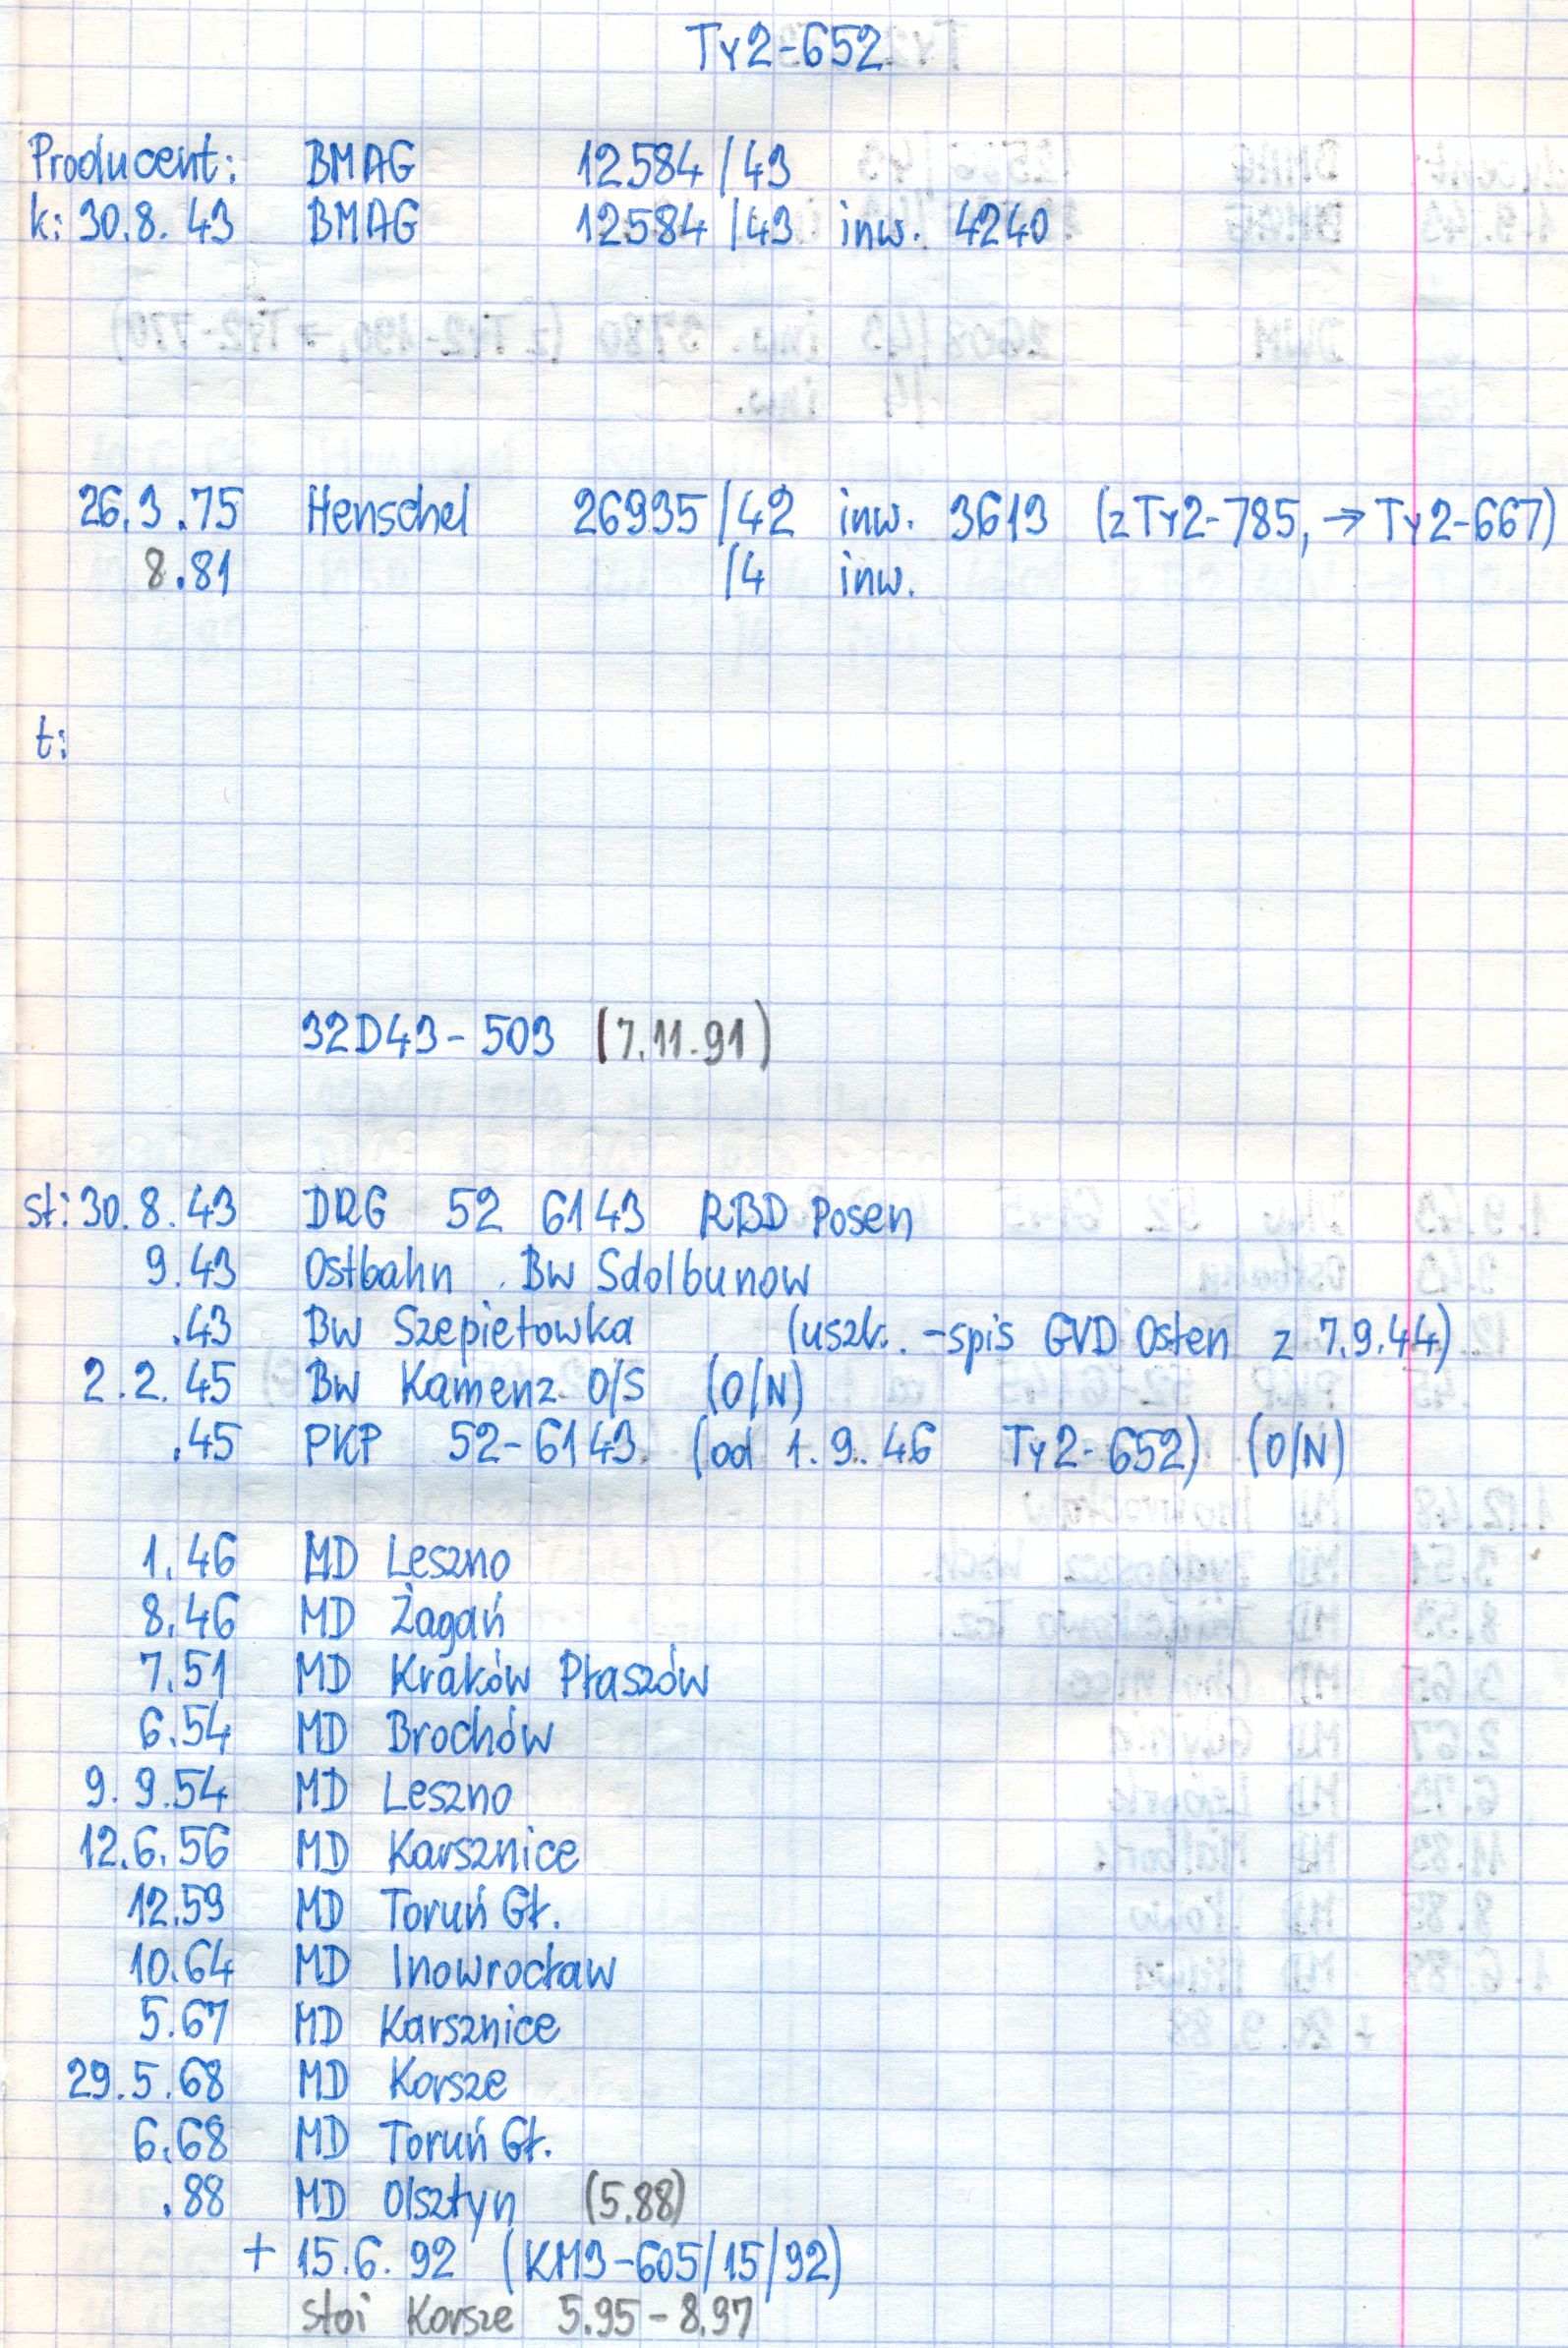 Ty2-652
Producent: BMAG 12584/43
k: 30.8.43 BMAG 12584/43 inw. 4240
26.3.75 Henschel 26935/42 inw. 3613 (z Ty2-785, → Ty2-667)
8.81 /4 inw.
t:
32D43-503 (7.11.91)
st: 30.8.43 DRG 52 6143 RBD Posen
9.43 Ostbahn Bw Sdolbunow
.43 Bw Szepietowka (uszk. - spis GVD Osten z 7.9.44)
2.2.45 Bw Kamenz O/S (O/N)
.45 PKP 52-6143 (od 1.9.46 Ty2-652) (O/N)
1.46 MD Leszno
8.46 MD Żagań
7.51 MD Kraków Płaszów
6.54 MD Brochów
9.9.54 MD Leszno
12.6.56 MD Karsznice
12.59 MD Toruń Gł.
10.64 MD Inowrocław
5.67 MD Karsznice
29.5.68 MD Korsze
6.68 MD Toruń Gł.
.88 MD Olsztyn (5.88)
+ 15.6.92 (KM3-605/15/92)
stoi Korsze 5.95-8.97